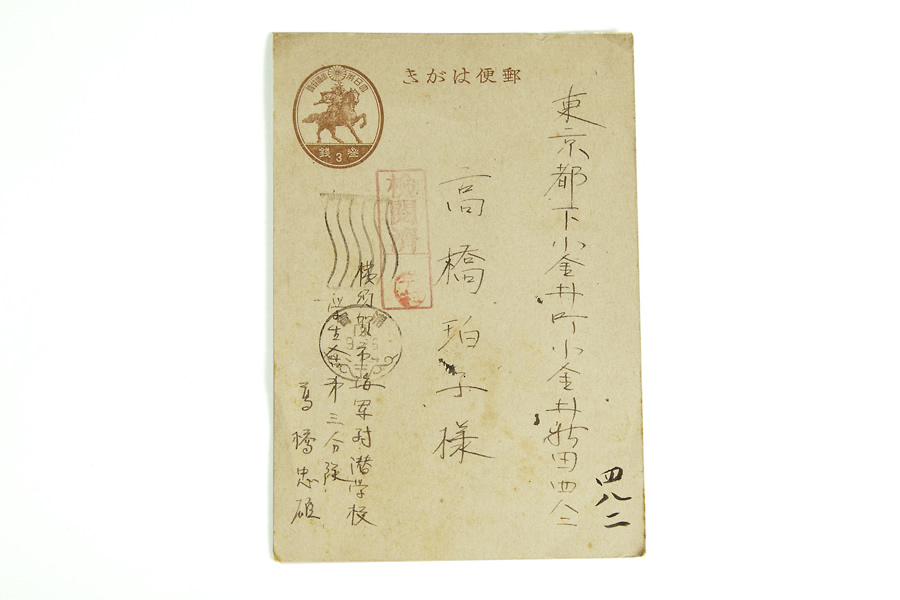 郵便はがき
大日本帝國郵便
參 3 銭
東京都下小金井町小金井新田四八二
四八二
高橋珀子様
検閲濟
横須賀市海軍対潜学校
学生舎第三分隊
高橋忠雄